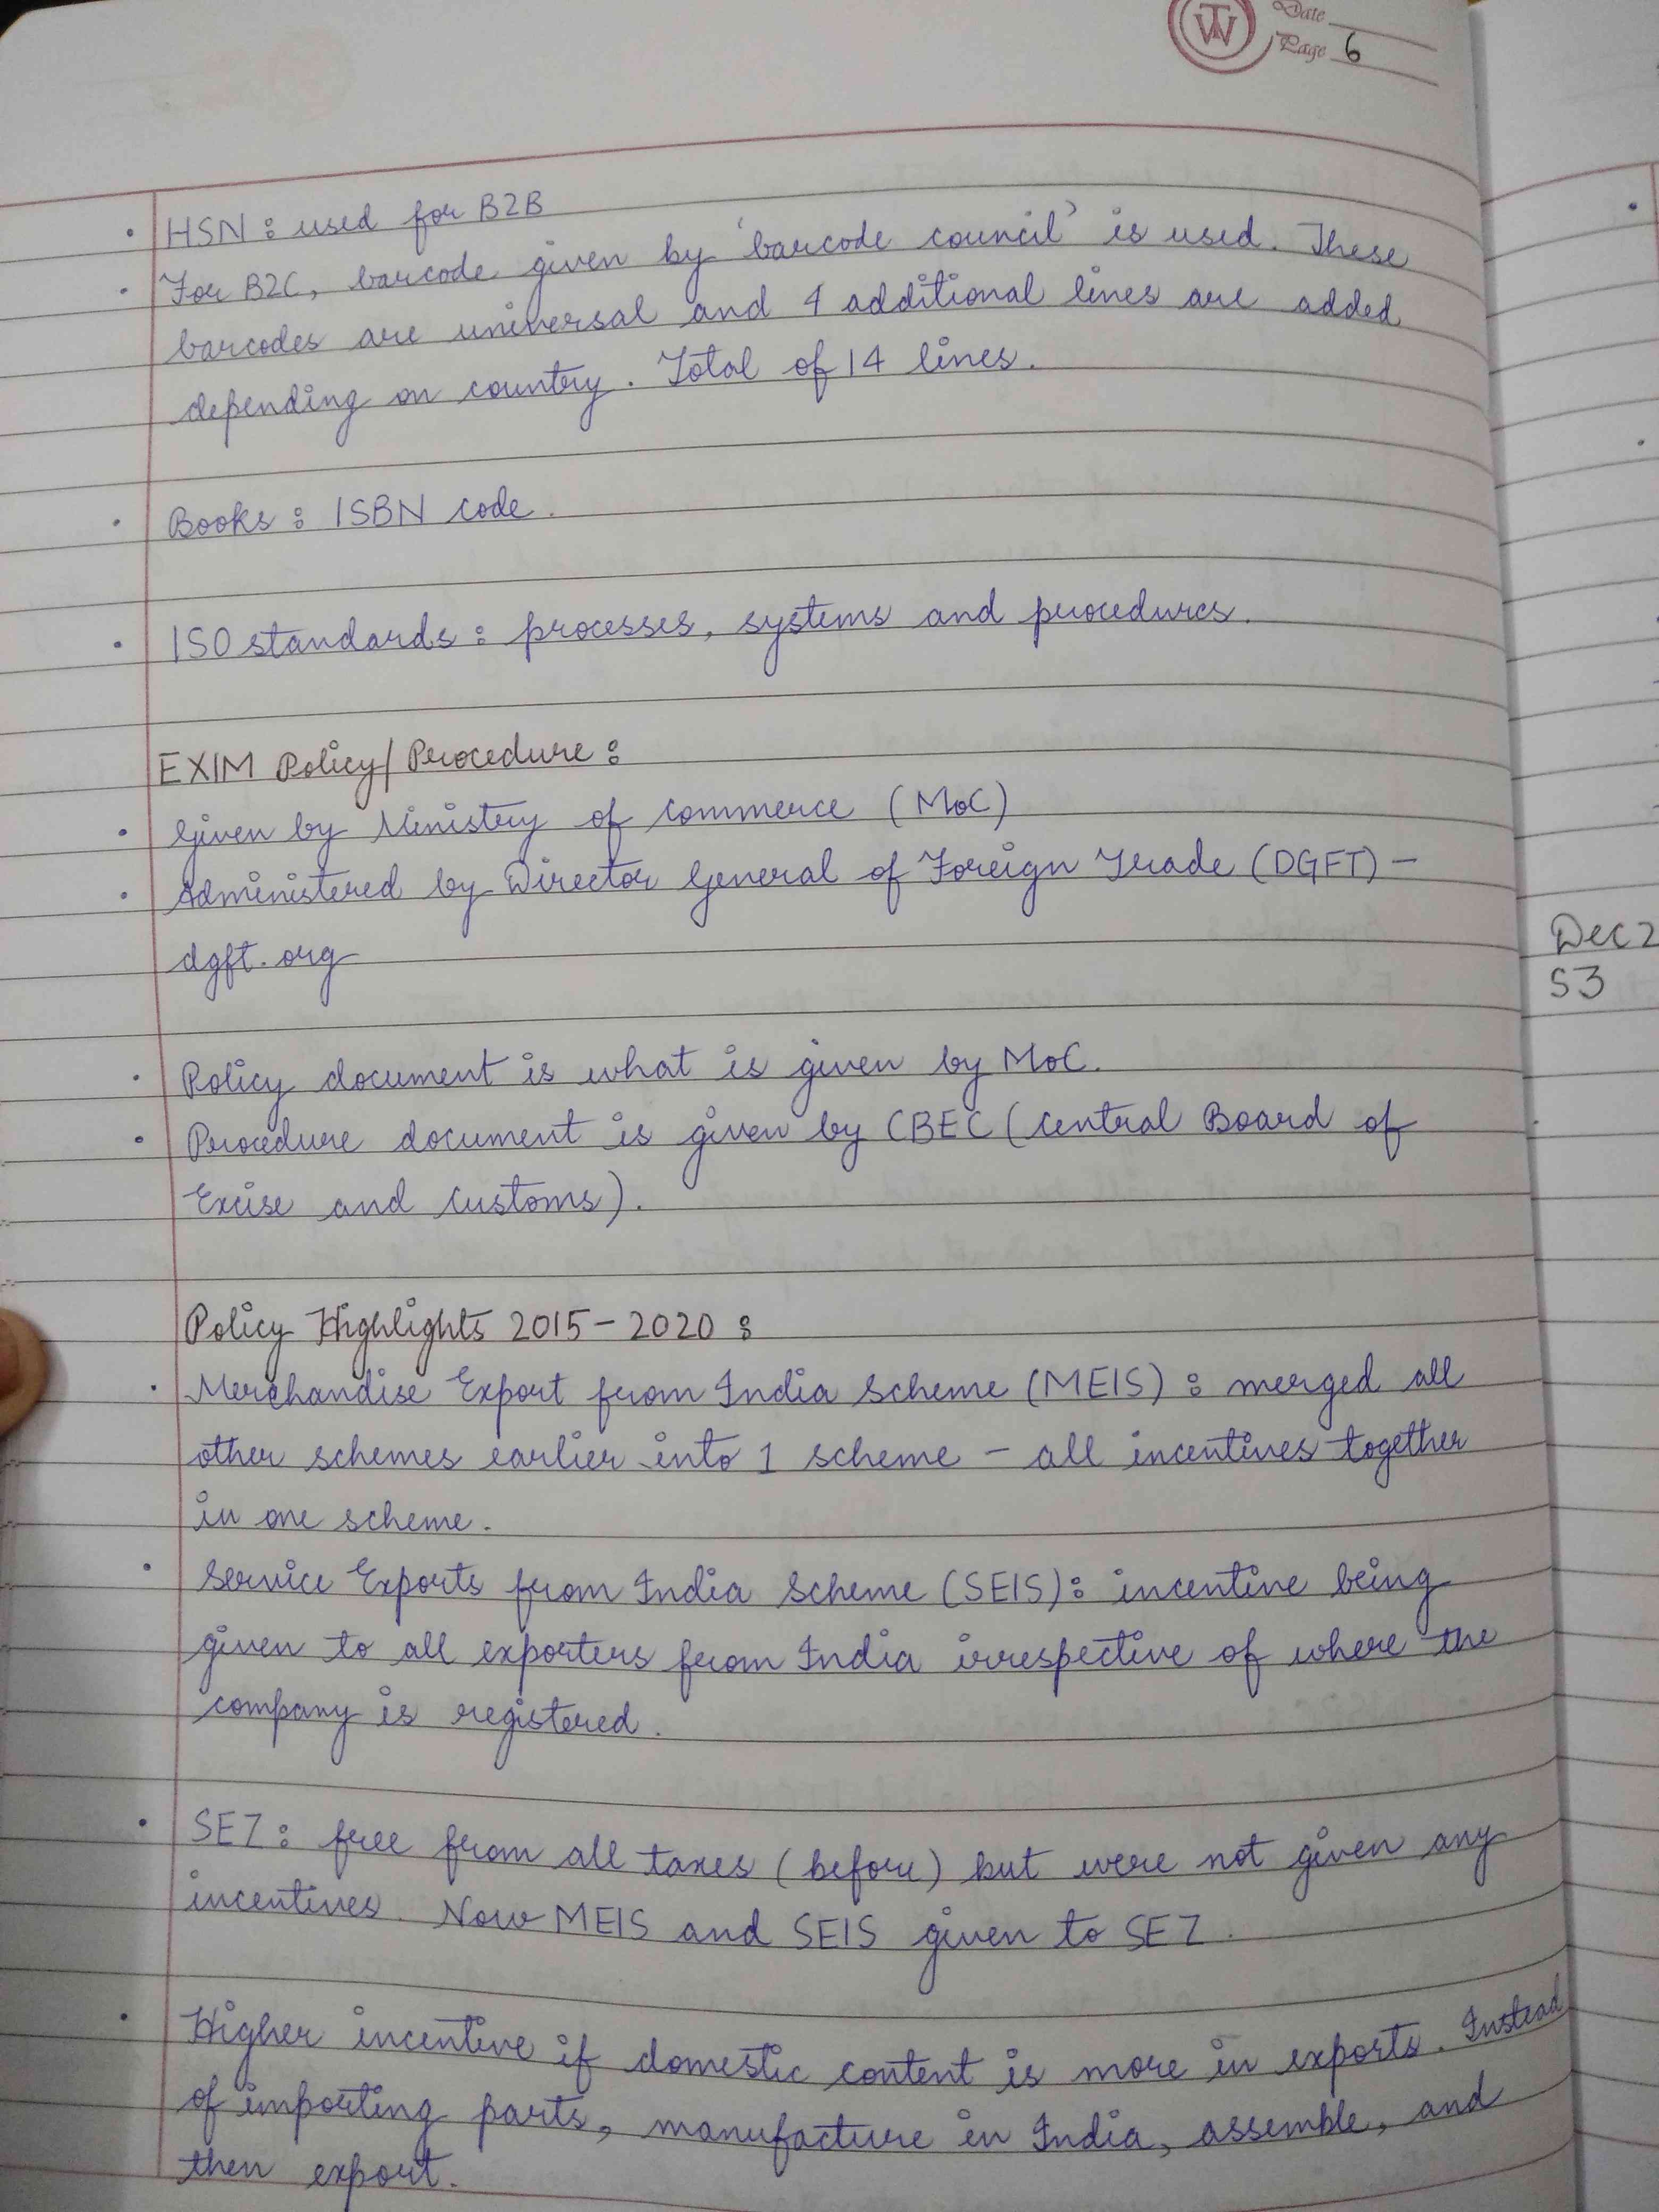 Date
Page 6
• HSN : used for B2B
• For B2C, barcode given by 'barcode council' is used. These
barcodes are universal and 4 additional lines are added
depending on country. Total of 14 lines.
• Books : ISBN code.
• ISO standards : processes, systems and procedures.
EXIM Policy/Procedure :
• Given by Ministry of Commerce (MoC)
• Administered by Director General of Foreign Trade (DGFT) –
dgft.org
• Policy document is what is given by MoC.
• Procedure document is given by CBEC (Central Board of
Excise and Customs).
Policy Highlights 2015 – 2020 :
• Merchandise Export from India Scheme (MEIS) : merged all
other schemes earlier into 1 scheme – all incentives together
in one scheme.
• Service Exports from India Scheme (SEIS) : incentive being
given to all exporters from India irrespective of where the
company is registered.
• SEZ : free from all taxes (before) but were not given any
incentives. Now MEIS and SEIS given to SEZ.
• Higher incentive if domestic content is more in exports. Instead
of importing parts, manufacture in India, assemble, and
then export.
Dec 2
S3